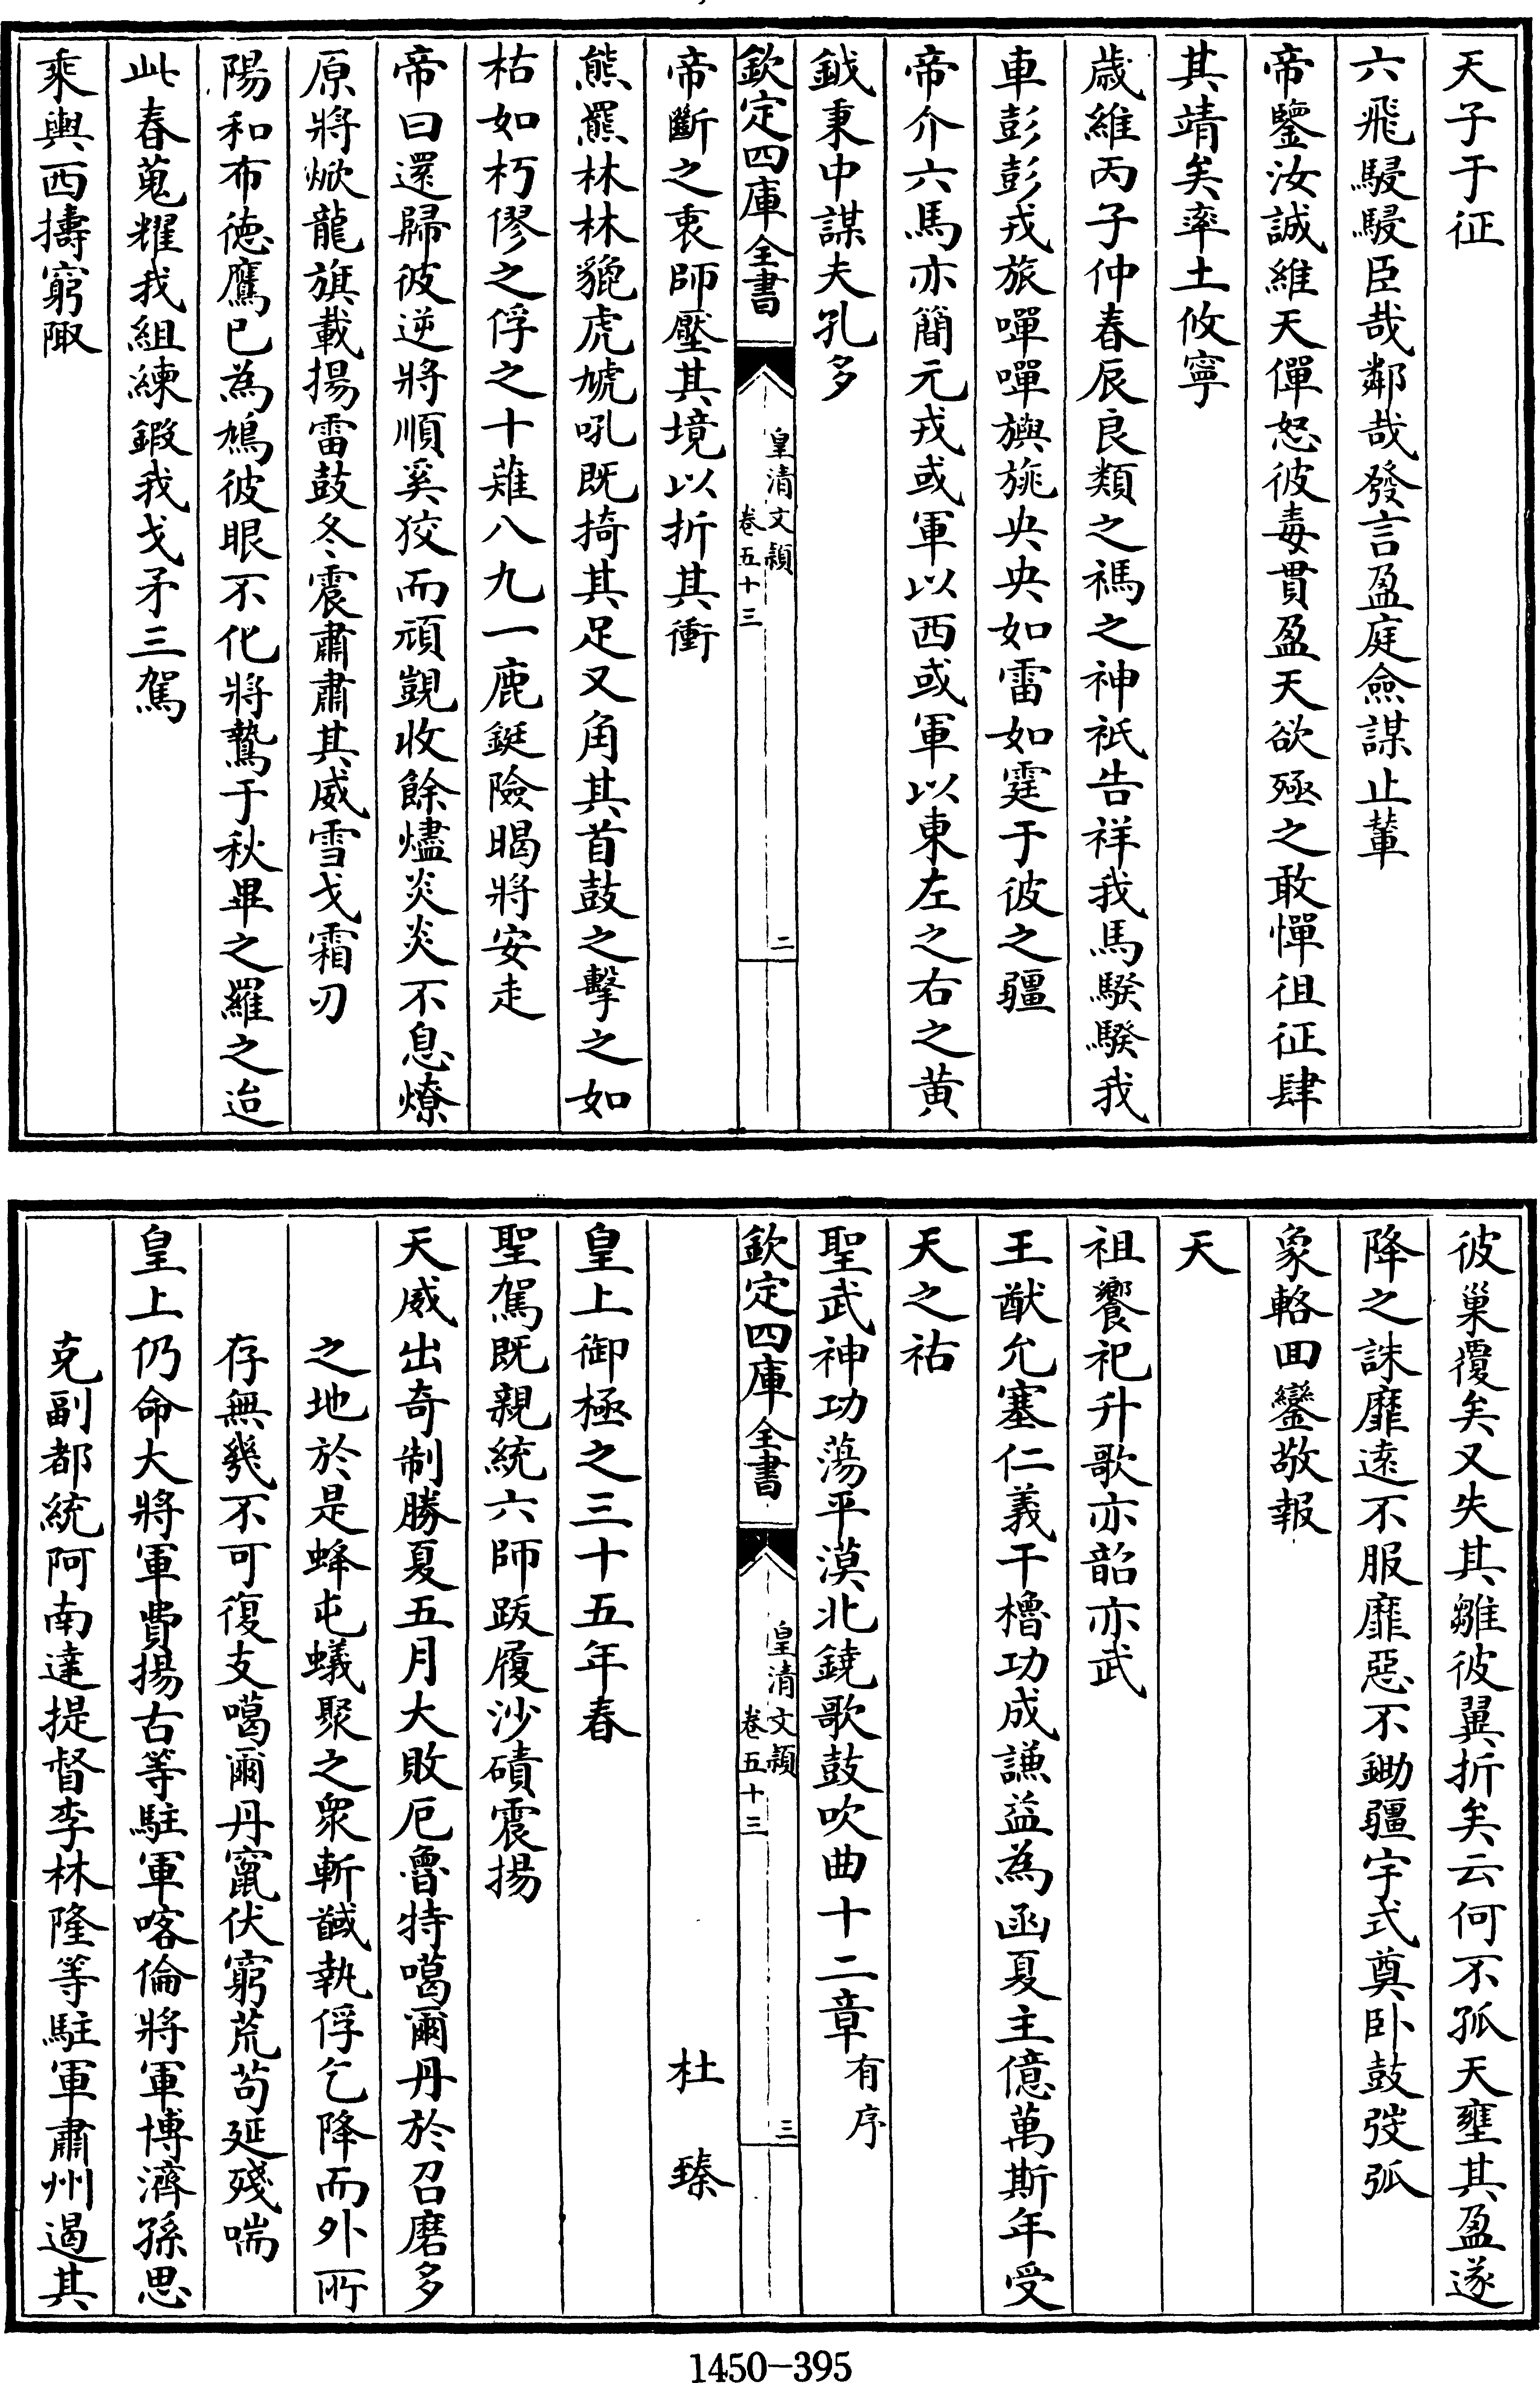 天子于征
六飛駸駸臣哉鄰哉發言盈庭僉謀止輦
帝鑒汝誠維天僤怒彼毒貫盈天欲殛之敢憚徂征肆
其靖矣率土攸寧
歲維丙子仲春辰良類之禡之神祇告祥我馬騤騤我
車彭彭戎旅嘽嘽旟旐央央如雷如霆于彼之疆
帝介六馬亦簡元戎或軍以西或軍以東左之右之黄
鉞秉中謀夫孔多
欽定四庫全書
皇清文穎
卷五十三
二
帝斷之衷師壓其境以折其衝
熊羆林林貔虎虓吼既掎其足又角其首鼓之擊之如
枯如朽僇之俘之十蕹八九一鹿鋌險暍將安走
帝曰還歸彼逆將順奚狡而頑覬收餘燼炎炎不息燎
原將焮龍旗載揚雷鼓冬震肅肅其威雪戈霜刃
陽和布德鷹已為鳩彼眼不化將鷙于秋畢之羅之迨
此春蒐耀我組練鍛我戈矛三駕
乘輿西擣窮陬
彼巢覆矣又失其雛彼翼折矣云何不孤天壅其盈遂
降之誅靡遠不服靡惡不鋤疆宇式奠卧鼓弢弧
象輅回鑾敬報
天
祖饗祀升歌亦韶亦武
王猷允塞仁義干櫓功成謙益為函夏主億萬斯年受
天之祐
聖武神功蕩平漠北鐃歌鼓吹曲十二章有序
欽定四庫全書
皇清文穎
卷五十三
三
杜臻
皇上御極之三十五年春
聖駕既親統六師跋履沙磧震揚
天威出奇制勝夏五月大敗厄魯特噶爾丹於召磨多
之地於是蜂屯蟻聚之衆斬馘執俘乞降而外所
存無幾不可復支噶爾丹竄伏窮荒苟延殘喘
皇上仍命大將軍費揚古等駐軍喀倫將軍博濟孫思
克副都統阿南達提督李林隆等駐軍肅州遏其
1450-395